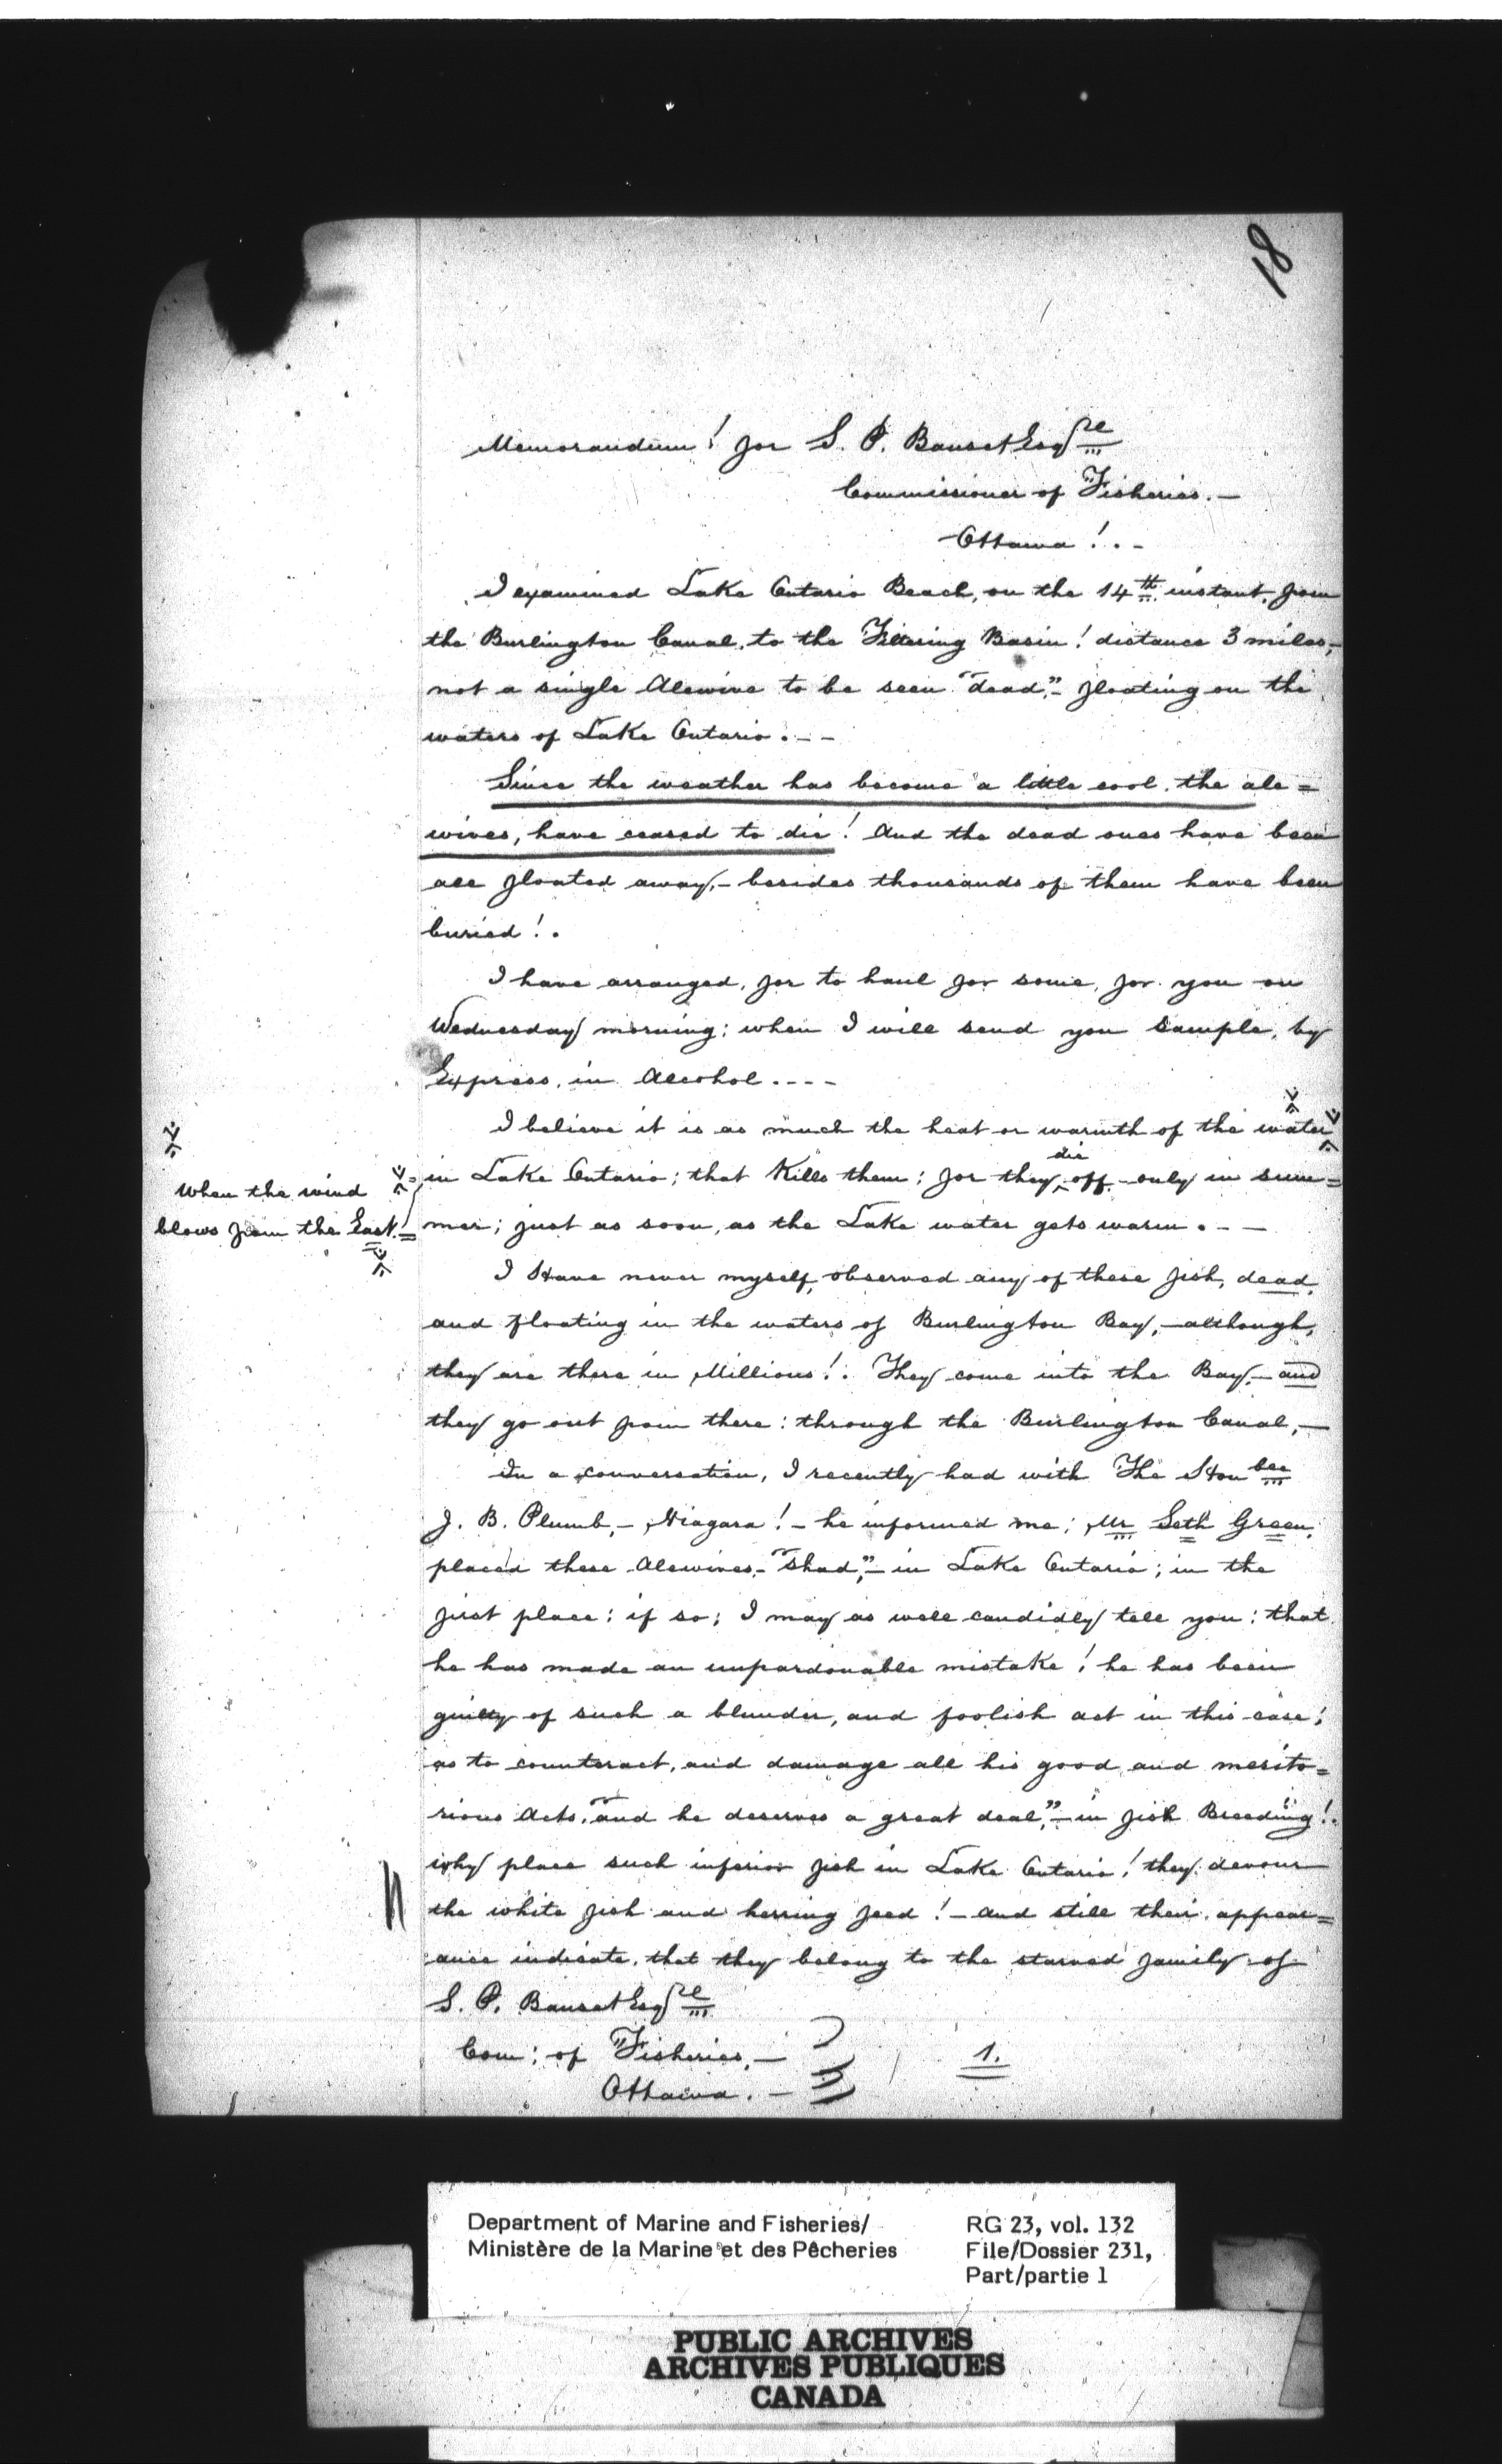 18
Memorandum! for S. P. Bauset Esqre
Commissioner of Fisheries.—
Ottawa!.-
I examined Lake Ontario Beach, on the 14th instant, from
the Burlington Canal, to the Filtering Basin! distance 3 miles,-
not a single Alewive to be seen "dead",- floating on the
waters of Lake Ontario.--
Since the weather has become a little cool, the ale=
wives, have ceased to die! And the dead ones have been
all floated away,- besides thousands of them have been
buried!.
I have arranged, for to haul for some, for you on
Wednesday morning; when I will send you sample, by
Express, in Alcohol.---
I believe it is as much the heat or warmth of the water
in Lake Ontario; that Kills them; for they die off- only in sum=
When the wind
blows from the East.=
mer; just as soon, as the Lake water gets warm.--
I Have never myself, observed any of these fish, dead,
and floating in the waters of Burlington Bay,- although,
they are there in Millions!. They come into the Bay,- and
they go out from there: through the Burlington Canal,—
In a conversation, I recently had with The Honble
J. B. Plumb,- Niagara!- he informed me; Mr Seth Green,
placed these Alewives- "Shad",- in Lake Ontario; in the
first place: if so; I may as well candidly tell you: that
he has made an unpardonable mistake! he has been
guilty of such a blunder, and foolish act in this case;
as to counteract, and damage all his good and merito=
rious Acts, "and he deserves a great deal",- in fish Breeding!.
why place such inferior fish in Lake Ontario! they devour
the white fish and herring feed!- And still their appear=
ance indicate, that they belong to the starved family of
S. P. Bauset Esqre
Com: of Fisheries,—
Ottawa.-
1.
Department of Marine and Fisheries/
Ministère de la Marine et des Pêcheries
RG 23, vol. 132
File/Dossier 231,
Part/partie 1
PUBLIC ARCHIVES
ARCHIVES PUBLIQUES
CANADA